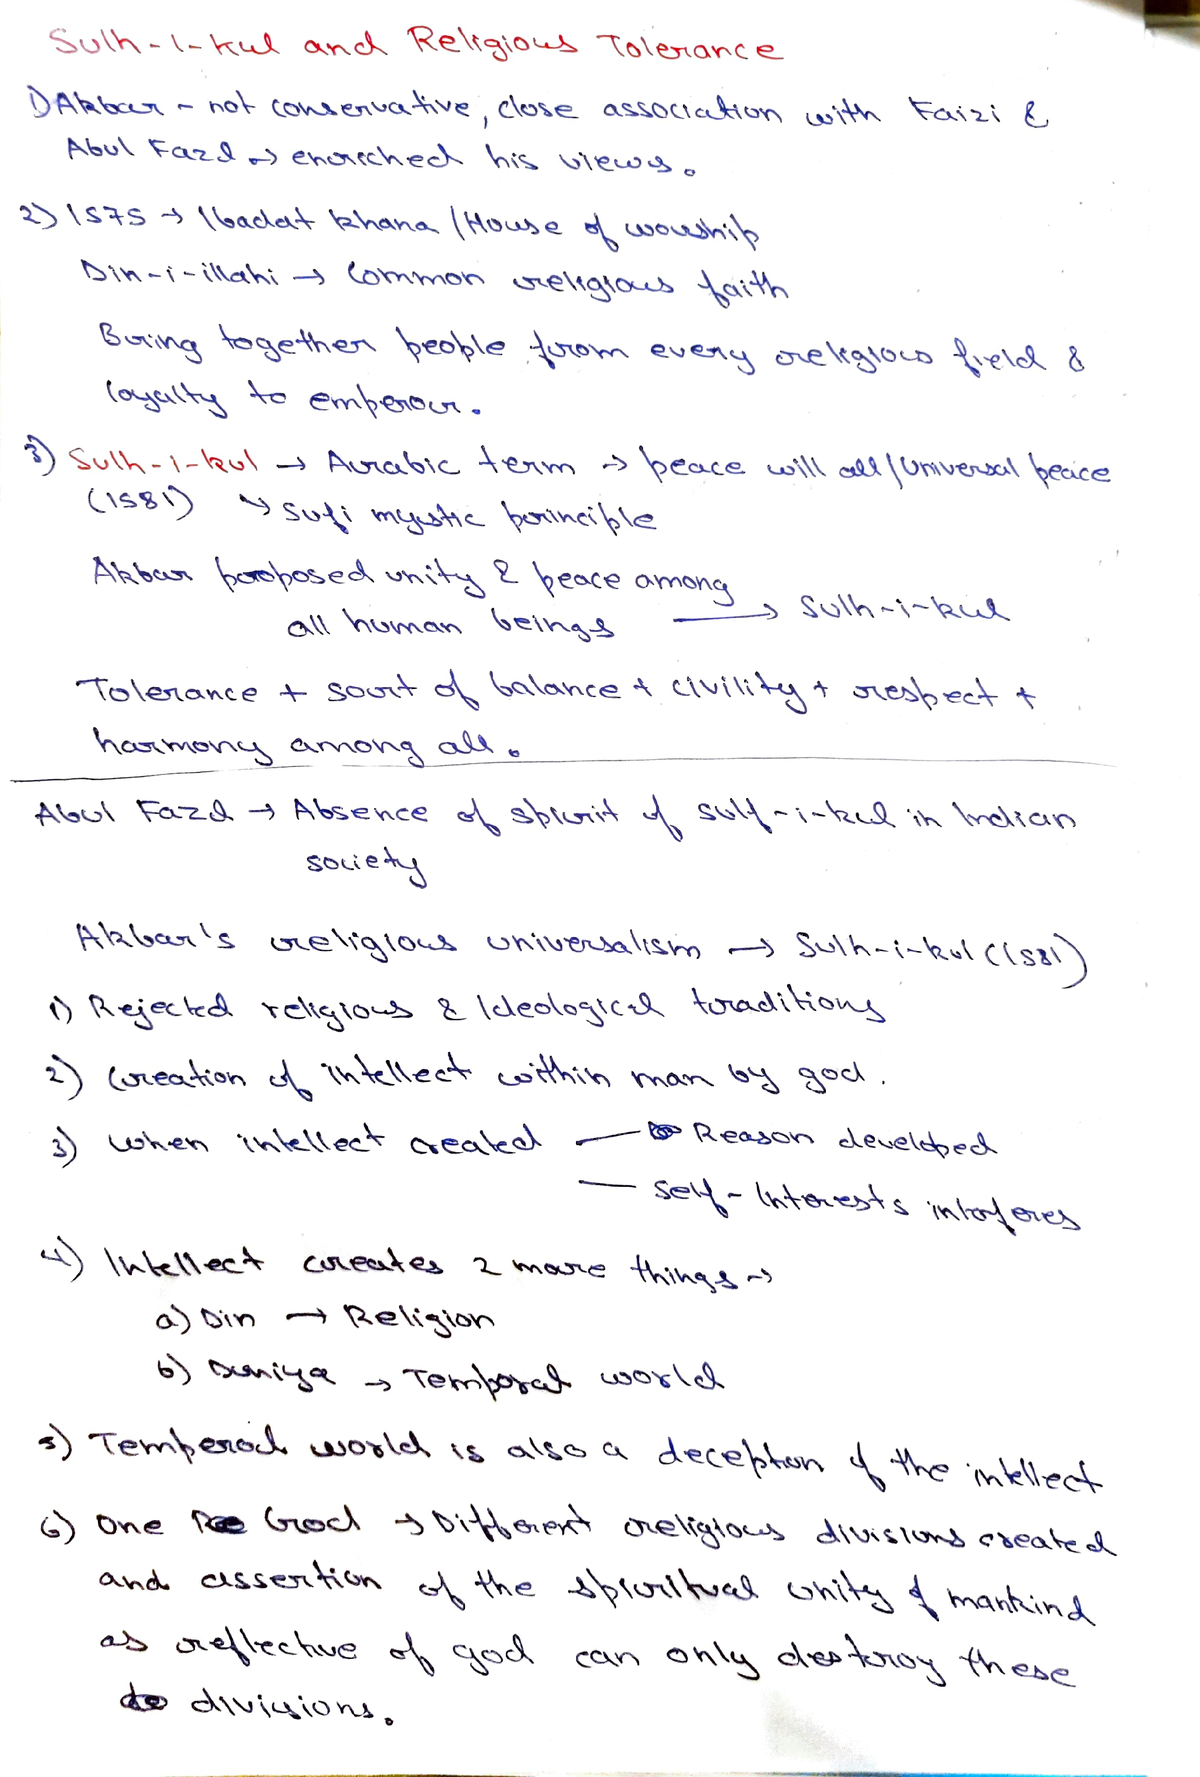 Sulh-i-kul and Religious Tolerance
1) Akbar - not conservative, close association with Faizi &
Abul Fazl → enriched his views.
2) 1575 → Ibadat khana (House of worship
Din-i-illahi → Common religious faith
Bring together people from every religious field &
loyalty to emperour.
3) Sulh-i-kul → Arabic term → peace will all/Universal peace
(1581) → Sufi mystic principle
Akbar proposed unity & peace among
all human beings → Sulh-i-kul
Tolerance + sort of balance + civility + respect +
harmony among all.
Abul Fazl → Absence of spirit of sulf-i-kul in Indian
society
Akbar's religious universalism → Sulh-i-kul (1581)
1) Rejected religious & Ideological traditions
2) Creation of intellect within man by god.
3) when intellect created — Reason developed
— Self-Interests interferes
4) Intellect creates 2 more things →
a) Din → Religion
b) Duniya → Temporal world
5) Temperal world is also a decepton of the intellect
6) One God → Different religious divisions created
and assertion of the spiritual unity of mankind
as reflective of god can only destroy these
divisions.